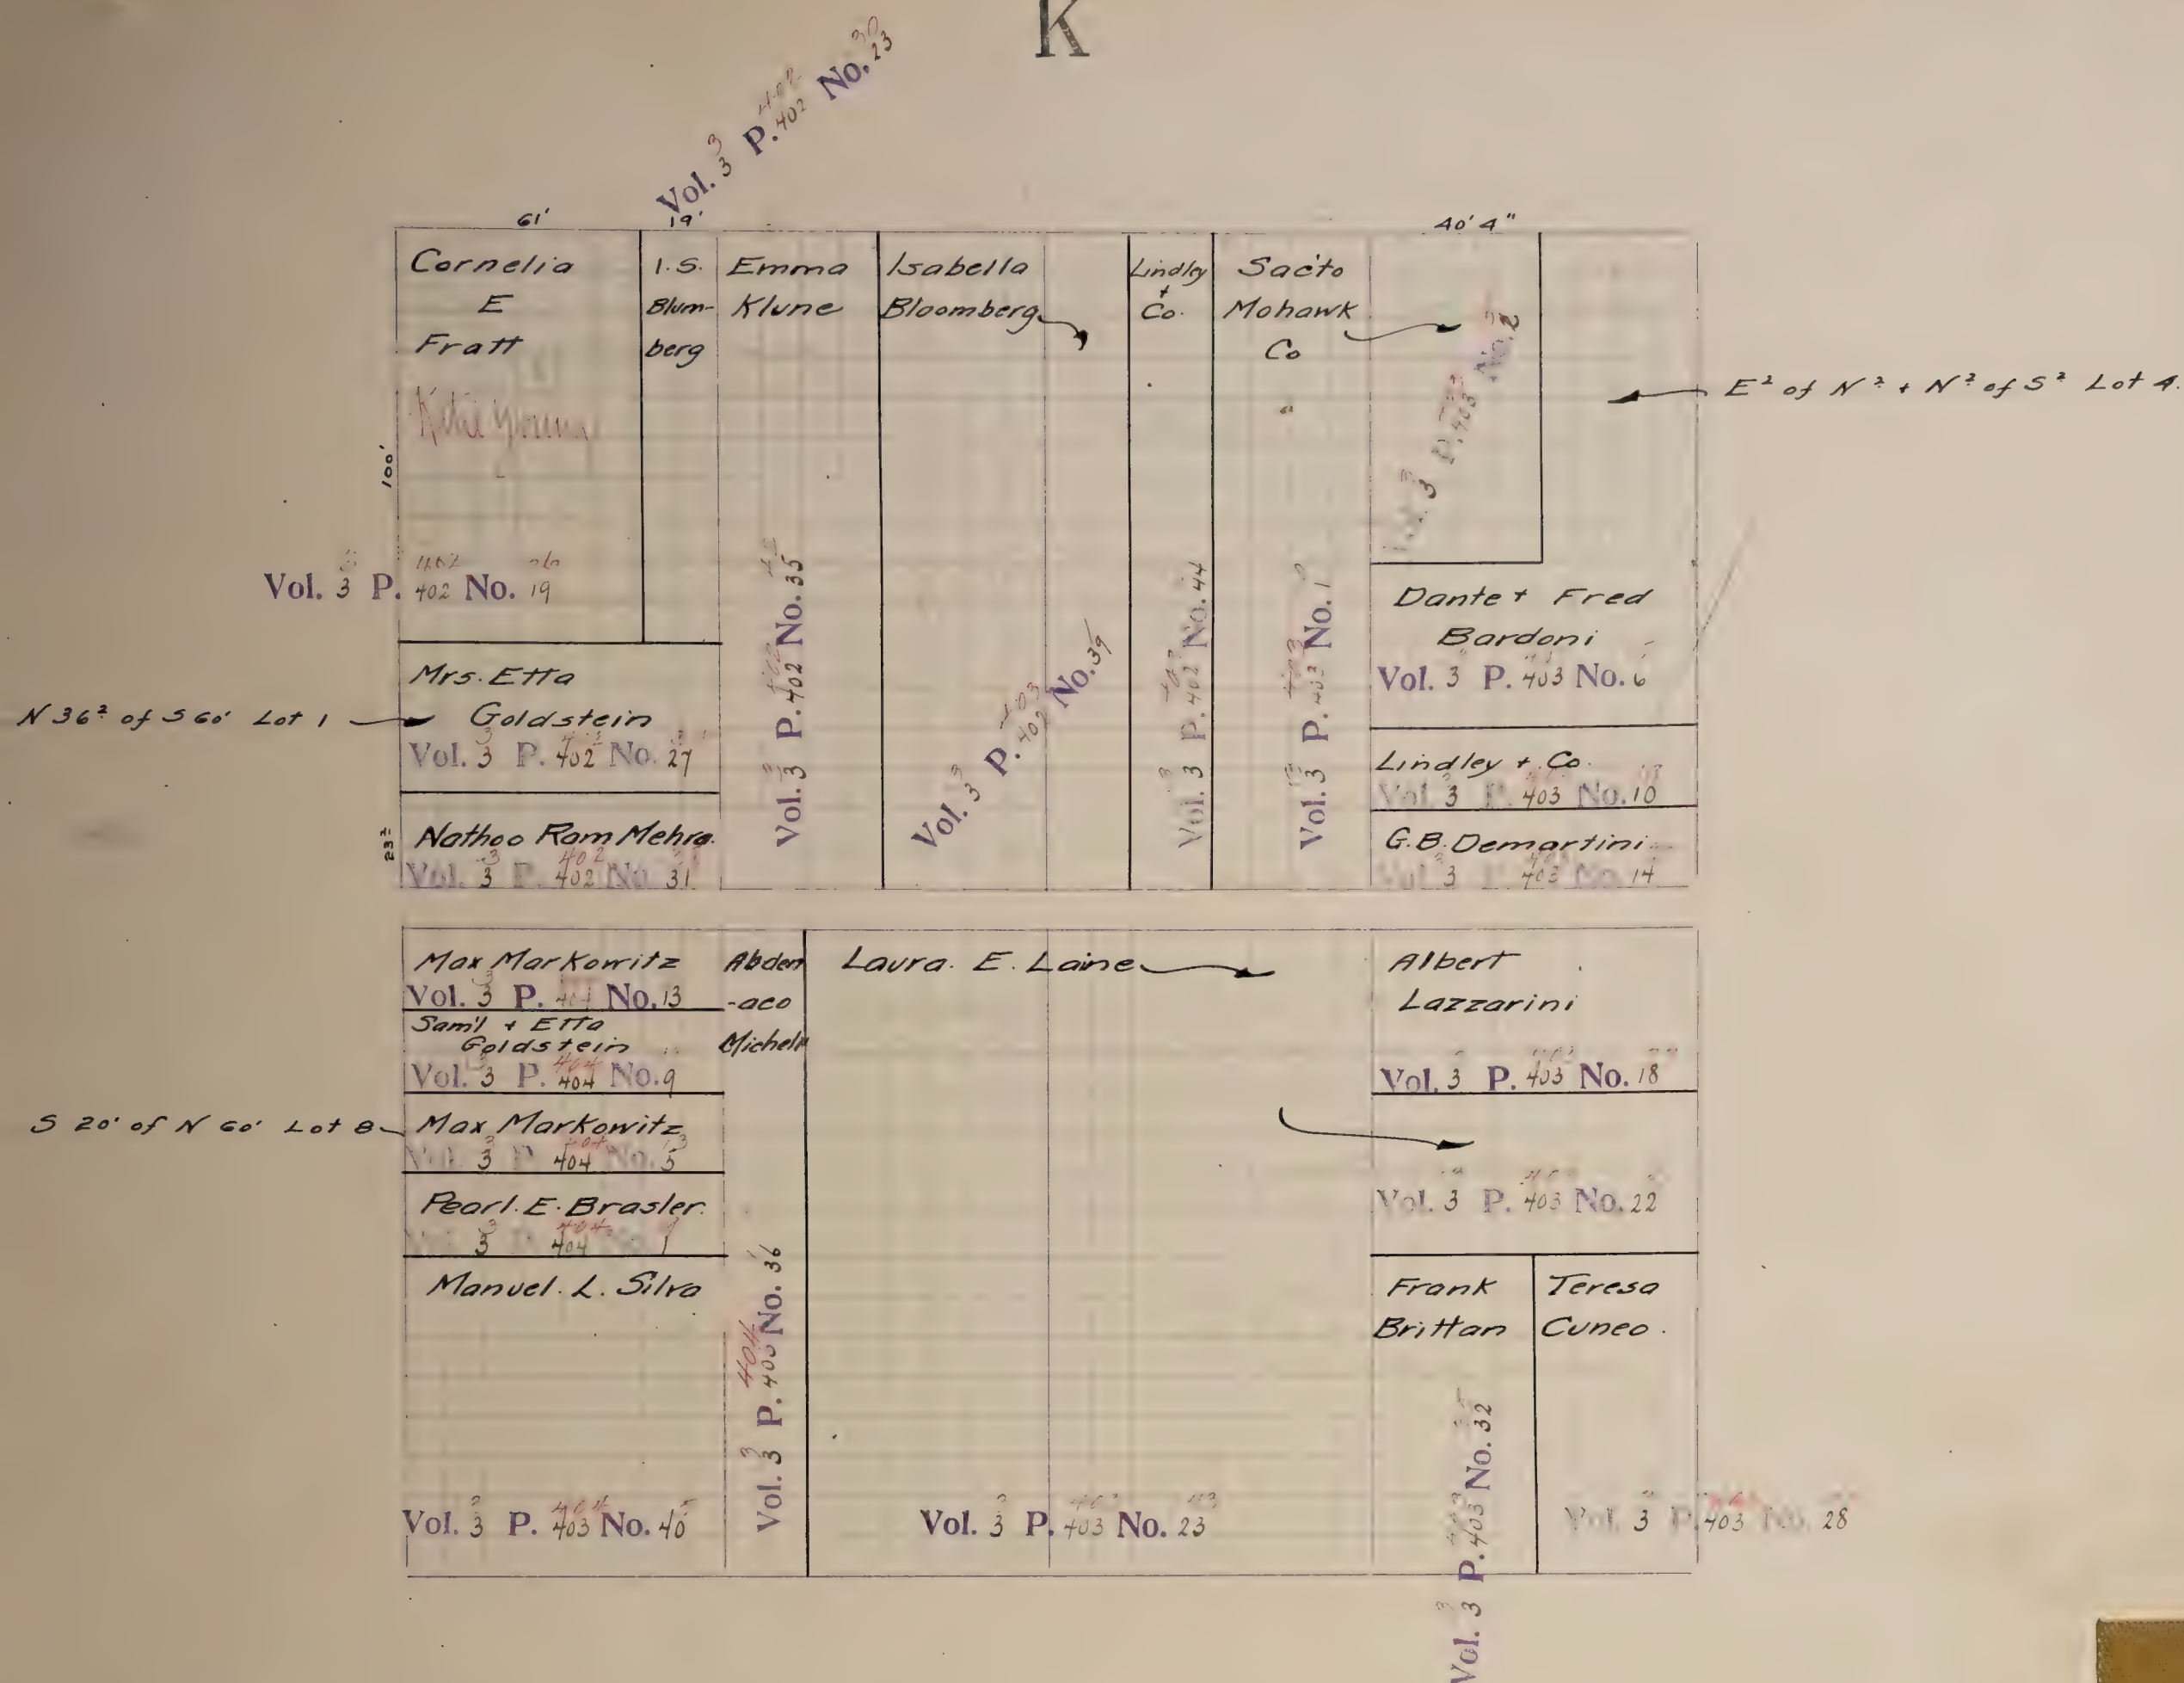 K
Vol. 3 P. 402 No. 23
61'
19'
40' 4"
Cornelia
E
Fratt
100'
Vol. 3 P. 402 No. 19
I. S.
Blum-
berg
Emma
Klune
Vol. 3 P. 402 No. 35
Isabella
Bloomberg
Vol. 3 P. 402 No. 39
Lindley
+
Co.
Vol. 3 P. 402 No. 44
Sac'to
Mohawk
Co
Vol. 3 P. 403 No. 1
Vol. 3 P. 403 No. 2
E² of N² + N² of S² Lot 4.
Dante + Fred
Bardoni
Vol. 3 P. 403 No. 6
Mrs. Etta
Goldstein
N 36² of S 60' Lot 1
Vol. 3 P. 402 No. 27
Lindley + Co.
Vol. 3 P. 403 No. 10
23²
Nathoo Ram Mehra.
Vol. 3 P. 402 No. 31
G. B. Demartini
Vol. 3 403 No. 14
Max Markowitz
Vol. 3 P. No. 13
Sam'l + Etta
Goldstein
Vol. 3 P. 404 No. 9
S 20' of N 60' Lot 8
Max Markowitz
Vol. 3 P. 404 No. 5
Pearl. E. Brasler.
3 404 1
Manuel. L. Silva
Vol. 3 P. 403 No. 40
404
Abden
-aco
Vol. 3 P. No. 36
404
Laura. E. Laine
Vol. 3 P. 403 No. 23
Albert
Lazzarini
Vol. 3 P. 403 No. 18
Vol. 3 P. 403 No. 22
Frank
Brittan
Vol. 3 P. 403 No. 32
Teresa
Cuneo.
Vol. 3 P. 403 No. 28